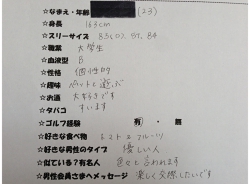 ☆なまえ・年齢 (23)
☆身長 163cm
☆スリーサイズ 83(C), 57, 84
☆職業 大学生
☆血液型 B
☆性格 個性的
☆趣味 ペットと遊ぶ
☆お酒 大好きです
☆タバコ すいます
☆ゴルフ経験 有・無
☆好きな食べ物 トマト フルーツ
☆好きな男性のタイプ 優しい人
☆似ている?有名人 色々と言われます
☆男性会員さまへメッセージ 楽しく交際したいです